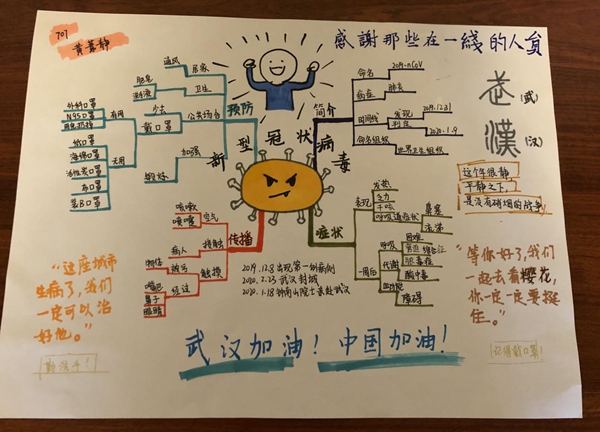 707
黄
静
感謝那些在一綫的人員
预防
居家
通风
卫生
肥皂
公共场合
少去
戴口罩
有用
外科口罩
N95口罩
无用
纸口罩
海绵口罩
活性炭口罩
布口罩
加强
锻炼
新型冠状病毒
简介
命名
2019-nCoV
病症
肺炎
时间线
发现
2019.12.31
2020.1.9
命名组织
世界卫生组织
武
(武)
漢
(汉)
这个年很静,
平静之下,
是没有硝烟的战争!
传播
空气
咳嗽
喷嚏
接触
病人
触摸
被污
物体
经过
嘴巴
鼻子
眼睛
症状
表现
发热
乏力
干咳
呼吸道症状
鼻塞
流涕
一周后
呼吸
困难
代谢
酸中毒
出凝血
障碍
2019.12.8 出现第一例病例
2020.2.23 武汉封城
2020.1.18 钟南山院士表赴武汉
“这座城市
生病了,我们
一定可以治
好他。”
“等你好了,我们
一起去看樱花,
你一定一定要挺
住。”
武汉加油!中国加油!
勤洗手!
记得戴口罩!